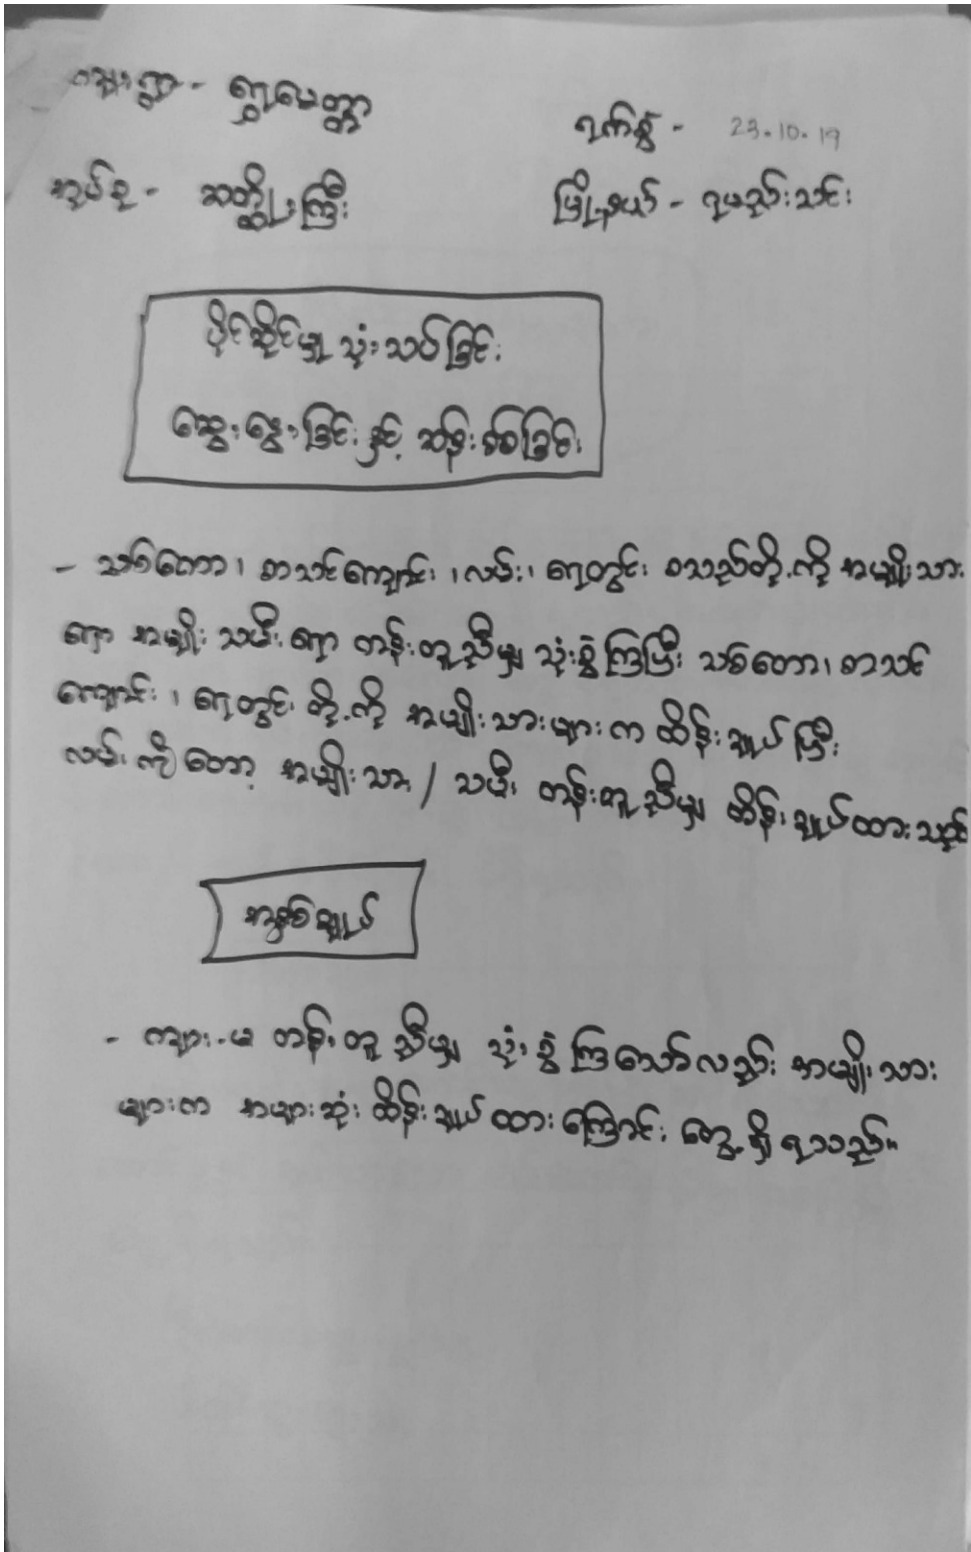 ကျေးရွာ - ရွှေမေတ္တာ
ရက်စွဲ - 23.10.19
အုပ်စု - ဆတ္ထုံးကြီး
မြို့နယ် - ရမည်းသင်း
ပိုင်ဆိုင်မှု သုံးသပ်ခြင်း
ဆွေးနွေးခြင်းနှင့် ဆန်းစစ်ခြင်း
- သစ်တော၊ စာသင်ကျောင်း၊ လမ်း၊ ရေတွင်း စသည်တို့ကို အမျိုးသား
ရော အမျိုးသမီးရော တန်းတူညီမျှ သုံးစွဲကြပြီး သစ်တော၊ စာသင်
ကျောင်း၊ ရေတွင်းတို့ကို အမျိုးသားများက ထိန်းချုပ်ပြီး
လမ်းကိုတော့ အမျိုးသား / သမီး တန်းတူညီမျှ ထိန်းချုပ်ထားသည်
အနှစ်ချုပ်
- ကျား-မ တန်းတူညီမျှ သုံးစွဲကြသော်လည်း အမျိုးသား
များက အများဆုံး ထိန်းချုပ်ထားကြောင်း တွေ့ရှိရသည်။